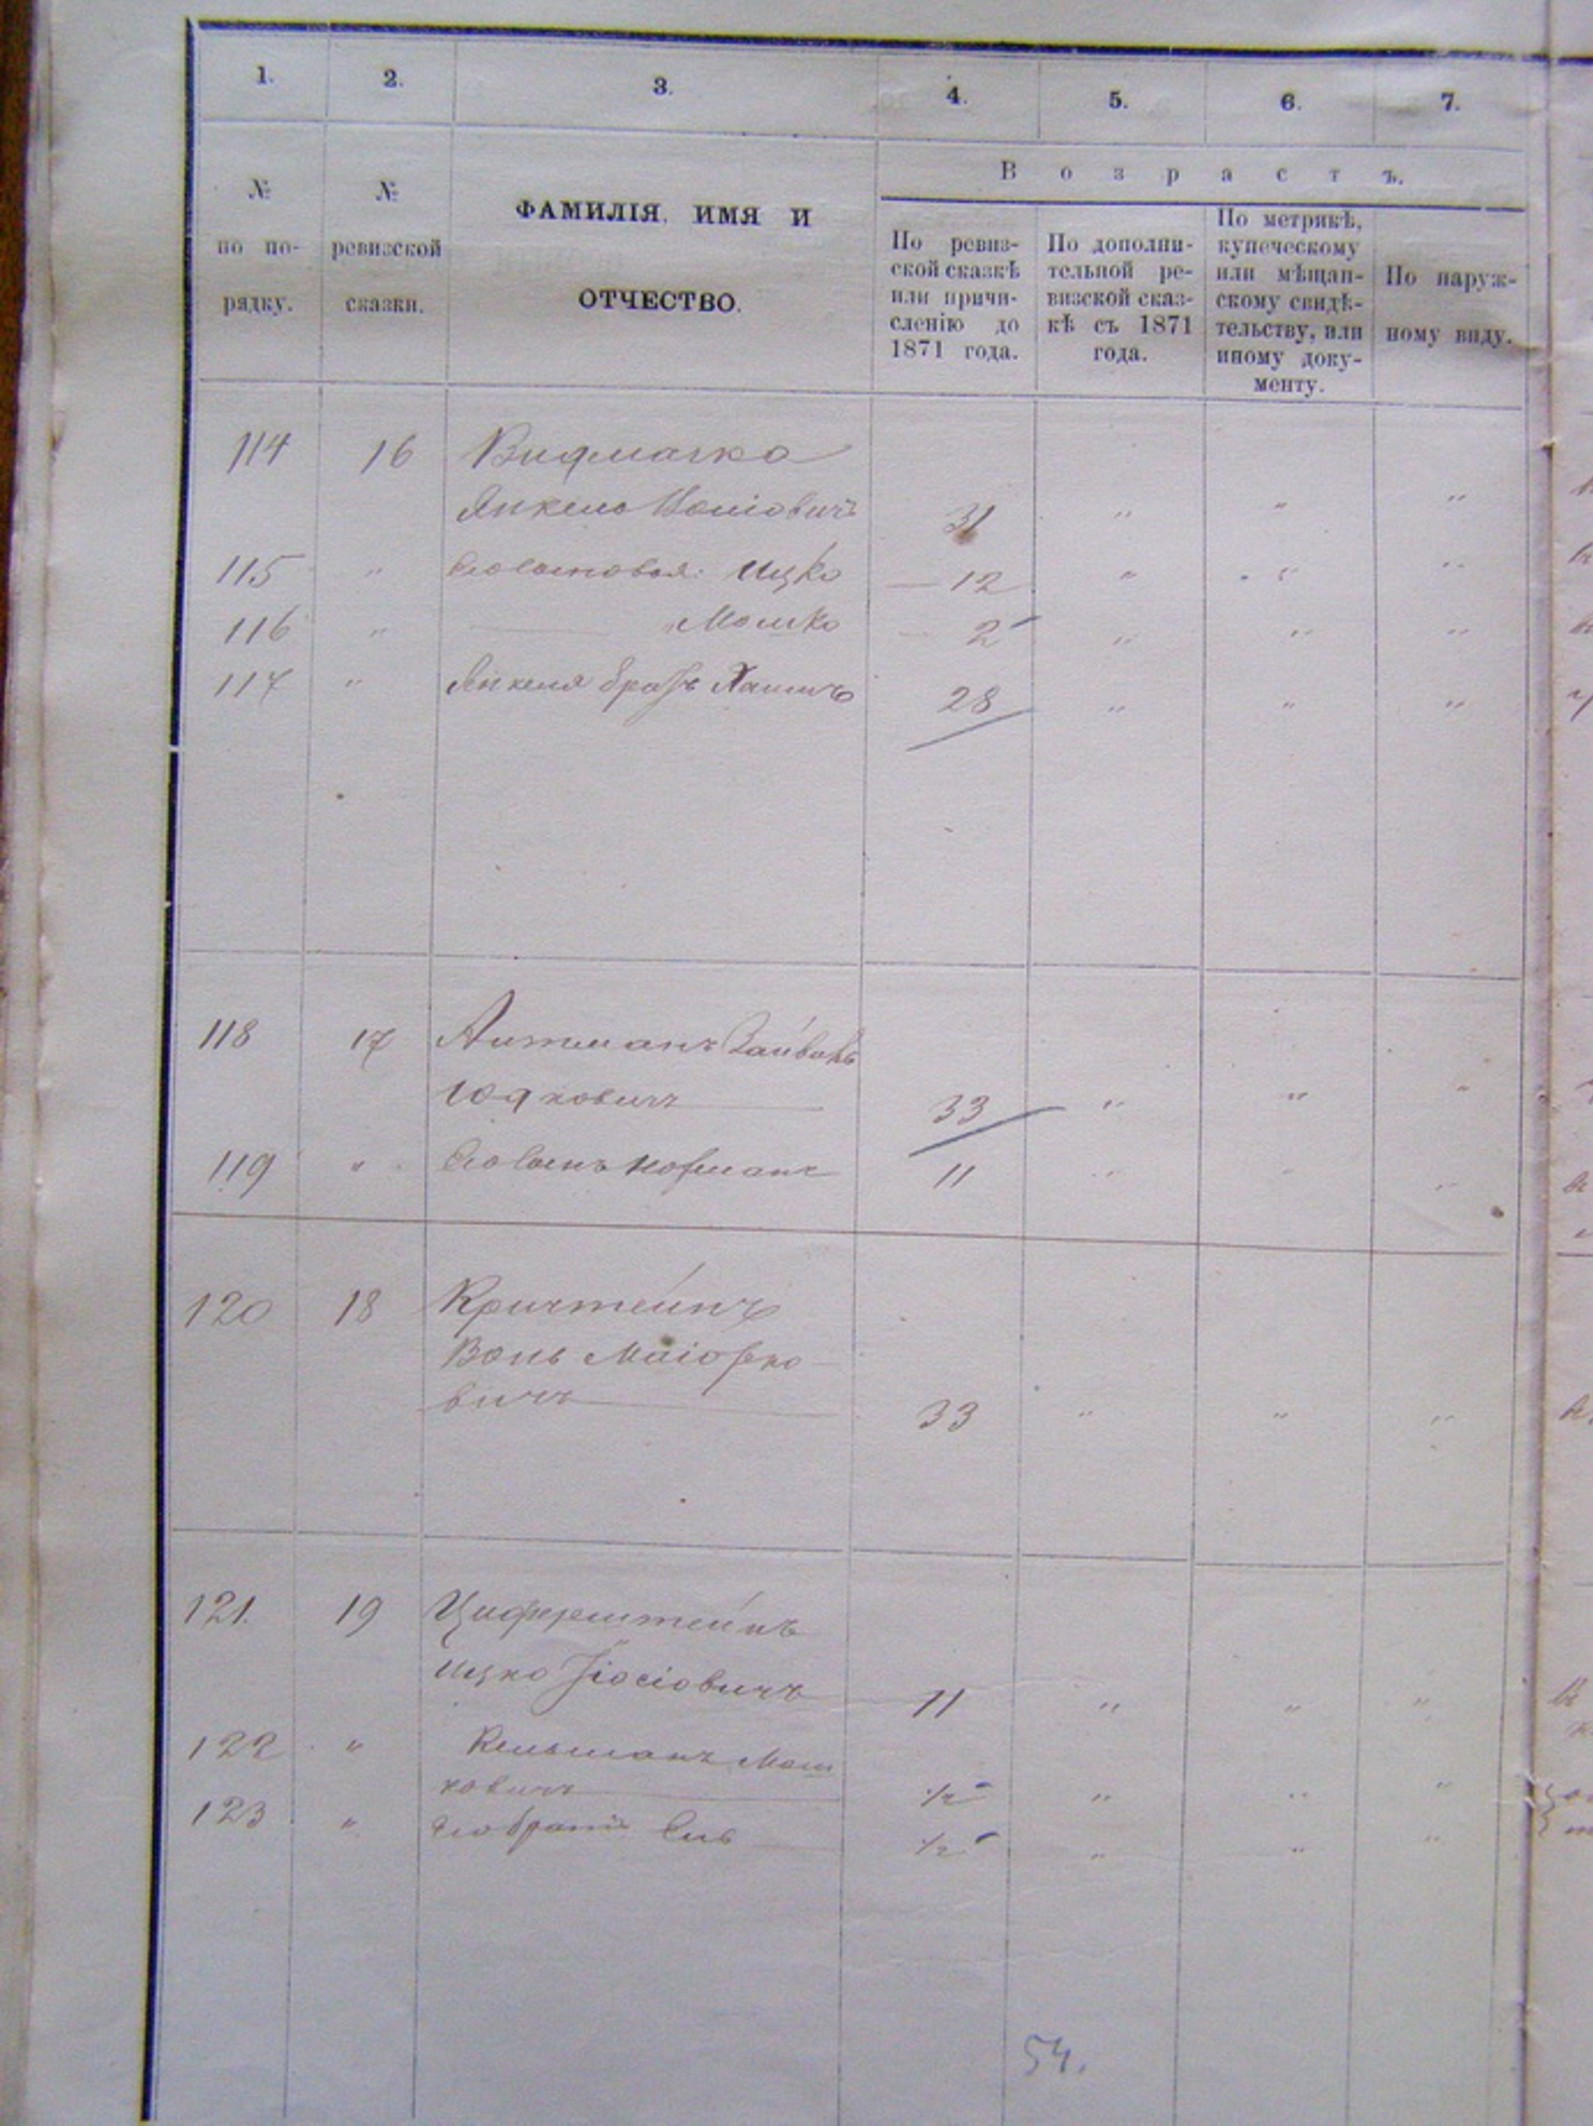 1. 2. 3. 4. 5. 6. 7.
№ по по-рядку.
№ ревизской сказки.
ФАМИЛІЯ, ИМЯ И
ОТЧЕСТВО.
Возрастъ.
По ревиз-
ской сказкѣ
или причи-
сленію до
1871 года.
По дополни-
тельной ре-
визской сказ-
кѣ съ 1871
года.
По метрикѣ,
купеческому
или мѣщан-
скому свидѣ-
тельству, или
иному доку-
менту.
По наруж-
ному виду.
114 16 Видмачко
Янкель 31 " " "
115 " Сыновья: Ицко — 12 " " "
116 " — Мошко — 2 " " "
117 " Янкеля братъ Хаимъ 28 " " "
118 17
Юдковичъ 33 " " "
119 " Его сынъ 11 " " "
120 18 Кричтейнъ
Маіорко
вичъ 33 " " "
121. 19 Циферштейнъ
Ицко Іосіовичъ 11 " " "
122 " Кельманъ Мош
ковичъ 1/2 " " "
123 " Его братъ 1/2 " " "
54.